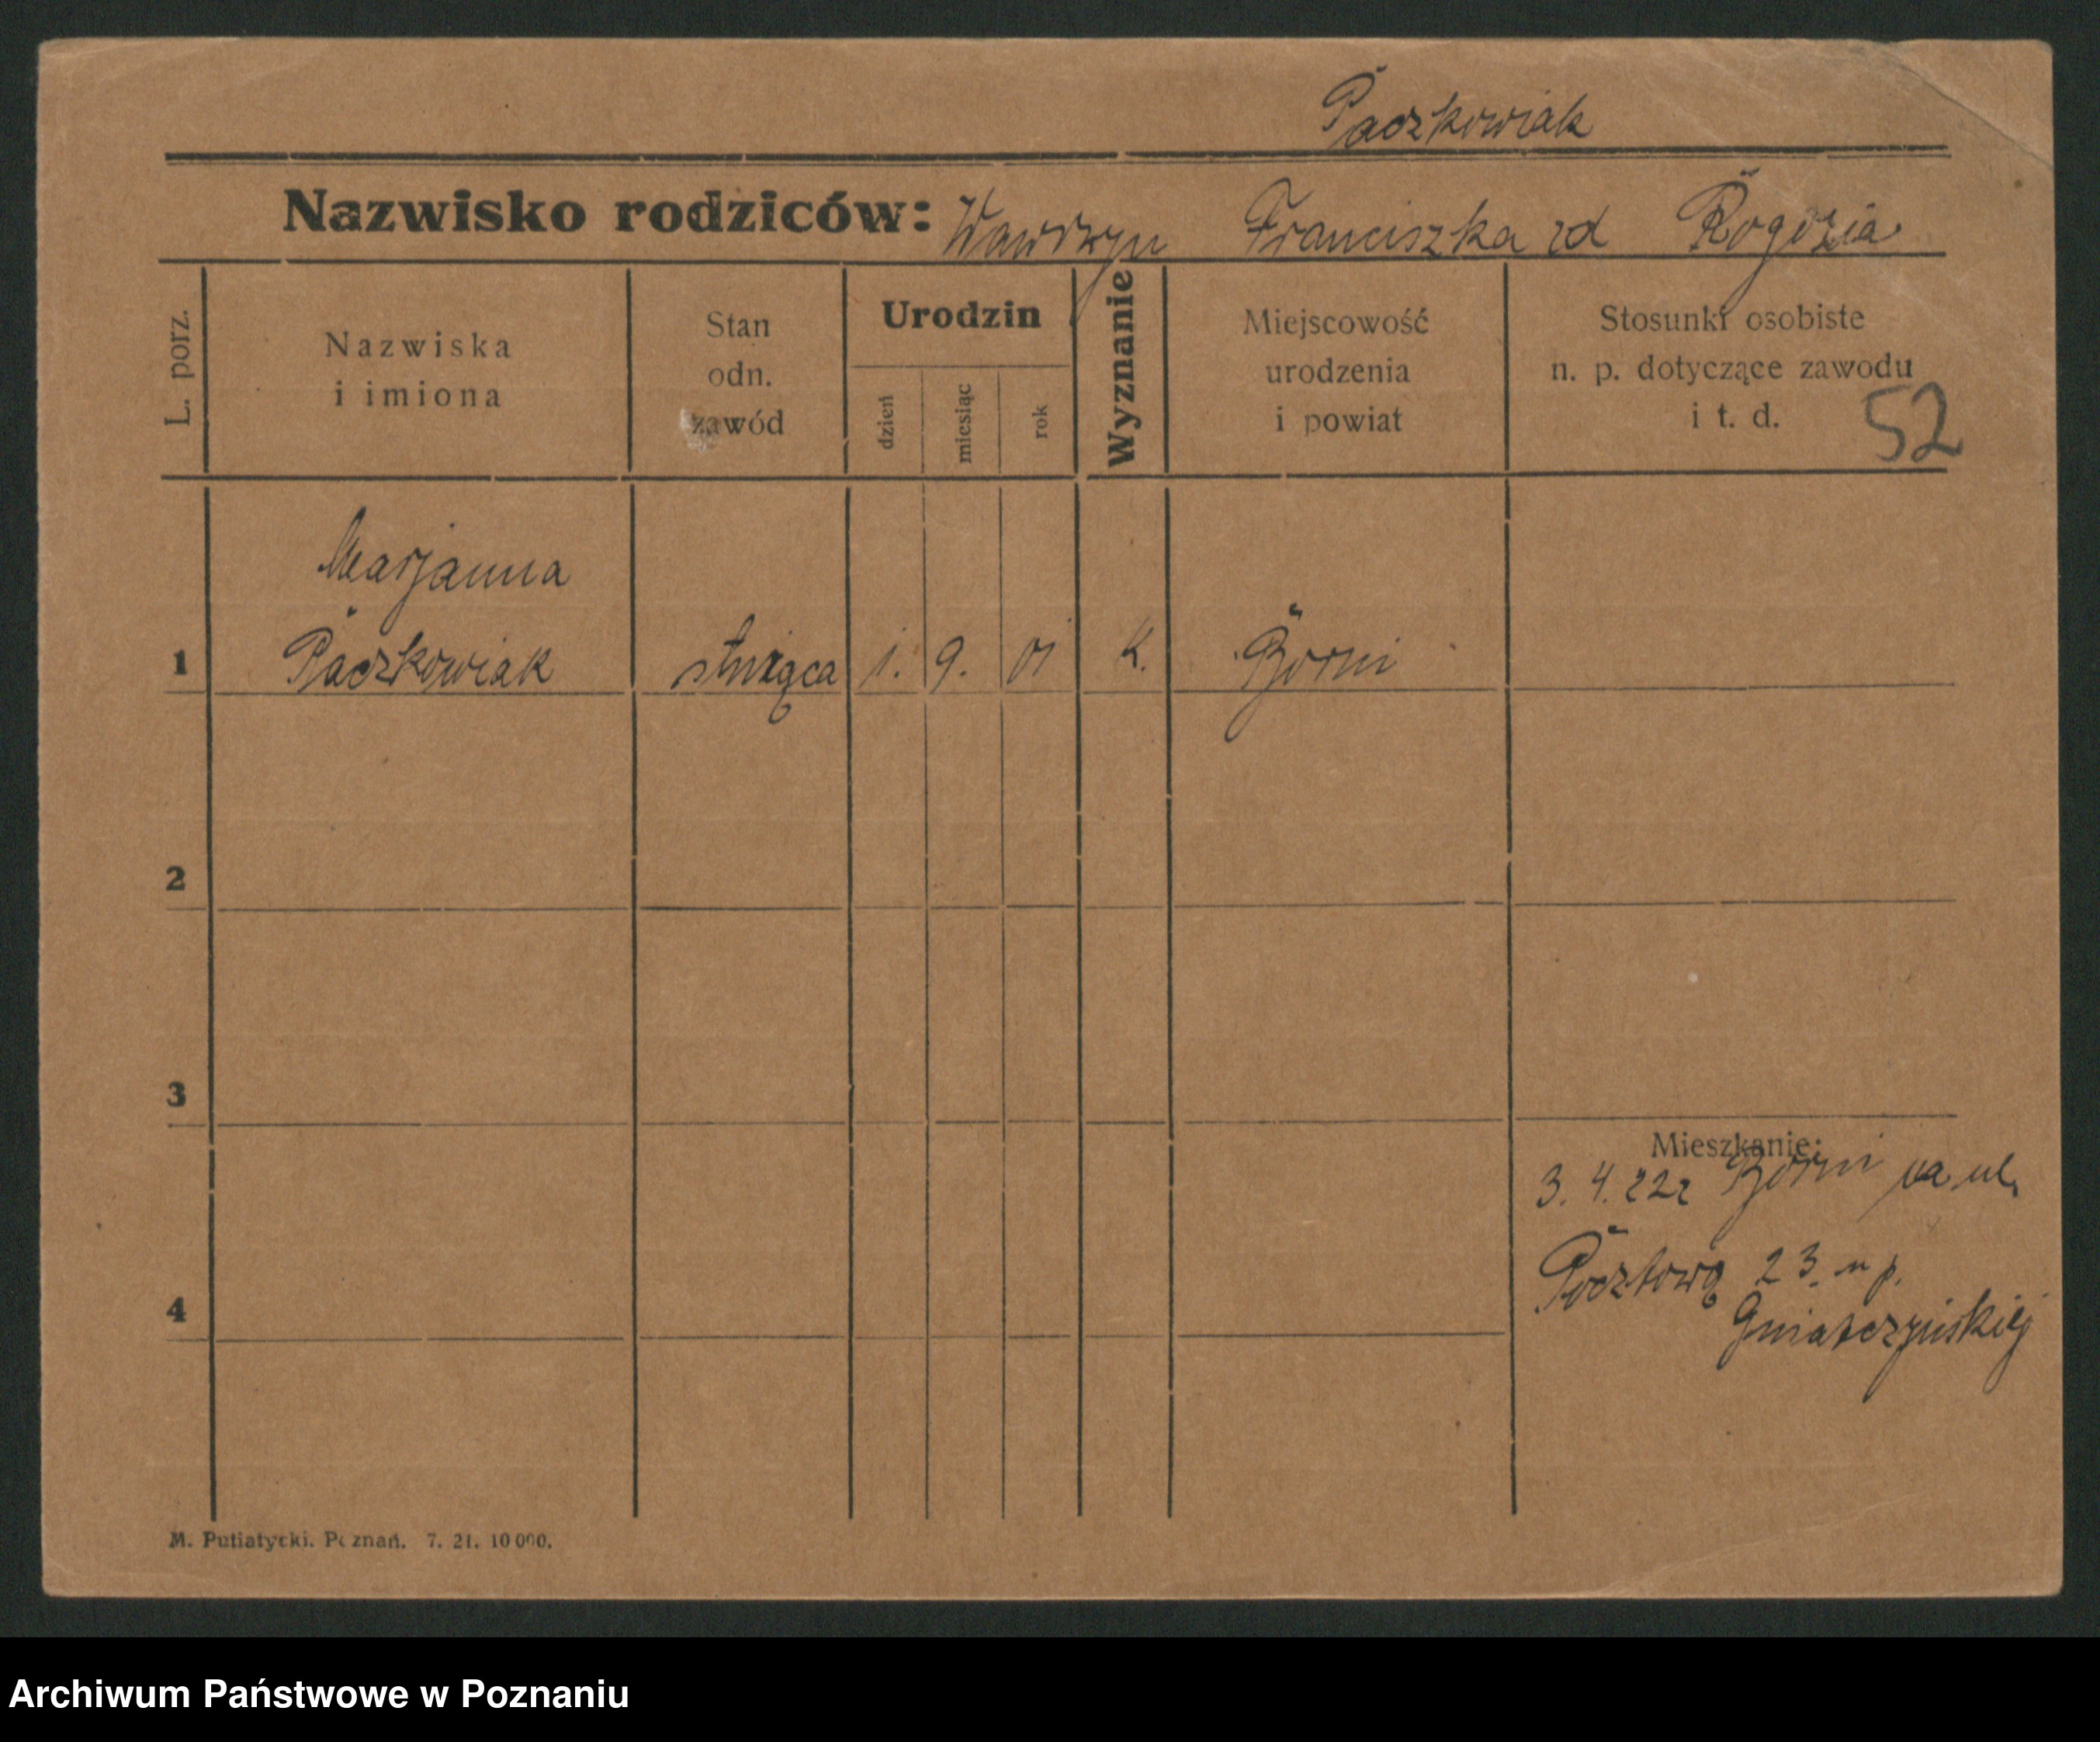 Paczkowiak
Nazwisko rodziców: Wawrzyn Franciszka zd Rogozia
L. porz.
Nazwiska
i imiona
Stan
odn.
zawód
Urodzin
dzień
miesiąc
rok
Wyznanie
Miejscowość
urodzenia
i powiat
Stosunki osobiste
n. p. dotyczące zawodu
i t. d.
52
Marjanna
1 Paczkowiak służąca 1. 9. 01 K. Borni
2
3
Mieszkanie:
3. 4. 22 Borni na ul.
Pocztową 23 p.
4
M. Putiatycki. Poznań. 7. 21. 10000.
Archiwum Państwowe w Poznaniu